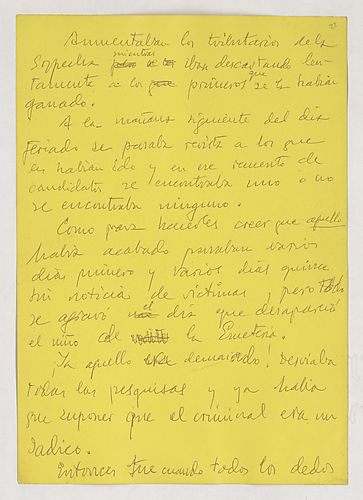 22
Aumentaban los tributarios de la
mientras
Sospecha iba descartando len-
tamente a los primeros que se la habían
ganado.
A la mañana siguiente del día
feriado se pasaba revista a los que
en habían ido y en ese recuento de
candidatos se encontraba uno o no
se encontraba ninguno.
Como para hacerles creer que aquello
había acabado pasaban varios
días primero y varios días quince
sin noticia de víctimas, pero todo
se agravó el día que desapareció
el niño de la Emeteria.
¡Ya aquello era demasiado! Desviaba
todas las pesquisas y ya había
que suponer que el criminal era un
sádico.
Entonces fue cuando todos los dedos